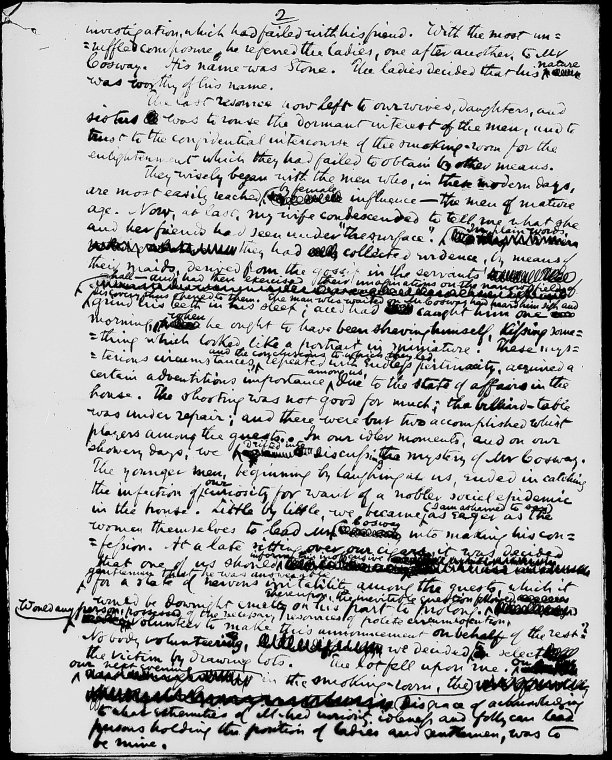 2
investigation, which had failed with his friend. With the most un=
=ruffled composure, he referred the ladies, one after another, to Mr
Cosway. His name was Stone. The ladies decided that his nature
was worthy of his name.
The last resource now left to our wives, daughters, and
sisters was to rouse the dormant interest of the men, and to
trust to the confidential intercourse of the smoking-room for the
enlightenment which they had failed to obtain by other means.
They wisely began with the men who, in these modern days,
are most easily reached by female influence — the men of mature
age. Now, at last, my wife condescended to tell me what she
and her friends had seen under "the surface". In plain words,
they had collected evidence, by means of
their maids, derived from the gossip in the servants'
hall and had then exercised their imaginations on the narrow field
thus opened to them. The man who waited on Mr Cosway had heard him sigh and
grind his teeth in his sleep; and had caught him one
morning, when he ought to have been shaving himself, kissing some=
=thing which looked like a portrait in miniature. These mys=
=terious circumstances, and the conclusions to which they led,
repeated with endless pertinacity, acquired a
certain adventitious importance among us, due to the state of affairs in the
house. The shooting was not good for much; the billiard-table
was under repair; and there were but two accomplished whist
players among the guests. In our idler moments, and on our
showery days, we drifted into discussing the mystery of Mr Cosway.
The younger men, beginning by laughing at us, ended in catching
the infection of our curiosity for want of a nobler social epidemic
in the house. Little by little, we became (I am ashamed to say) as eager as the
women themselves to lead Mr Cosway into making his con=
=fession. At a late sitting over our cigars it was decided
that one of us should
gentleman that he was answerable
for a state of nervous irritability among the guests, which it
would be downright cruelty on his part to prolong.
Would any person possessed of the necessary resources of polite circumlocution,
volunteer to make this announcement on behalf of the rest?
Nobody volunteering, we decided to select
the victim by drawing lots. The lot fell upon me. On
our next evening in the smoking-room, the
disgrace of acknowledging
to what extremities of ill-bred curiosity idleness and folly can lead
persons holding the position of ladies and gentlemen, was to
be mine.